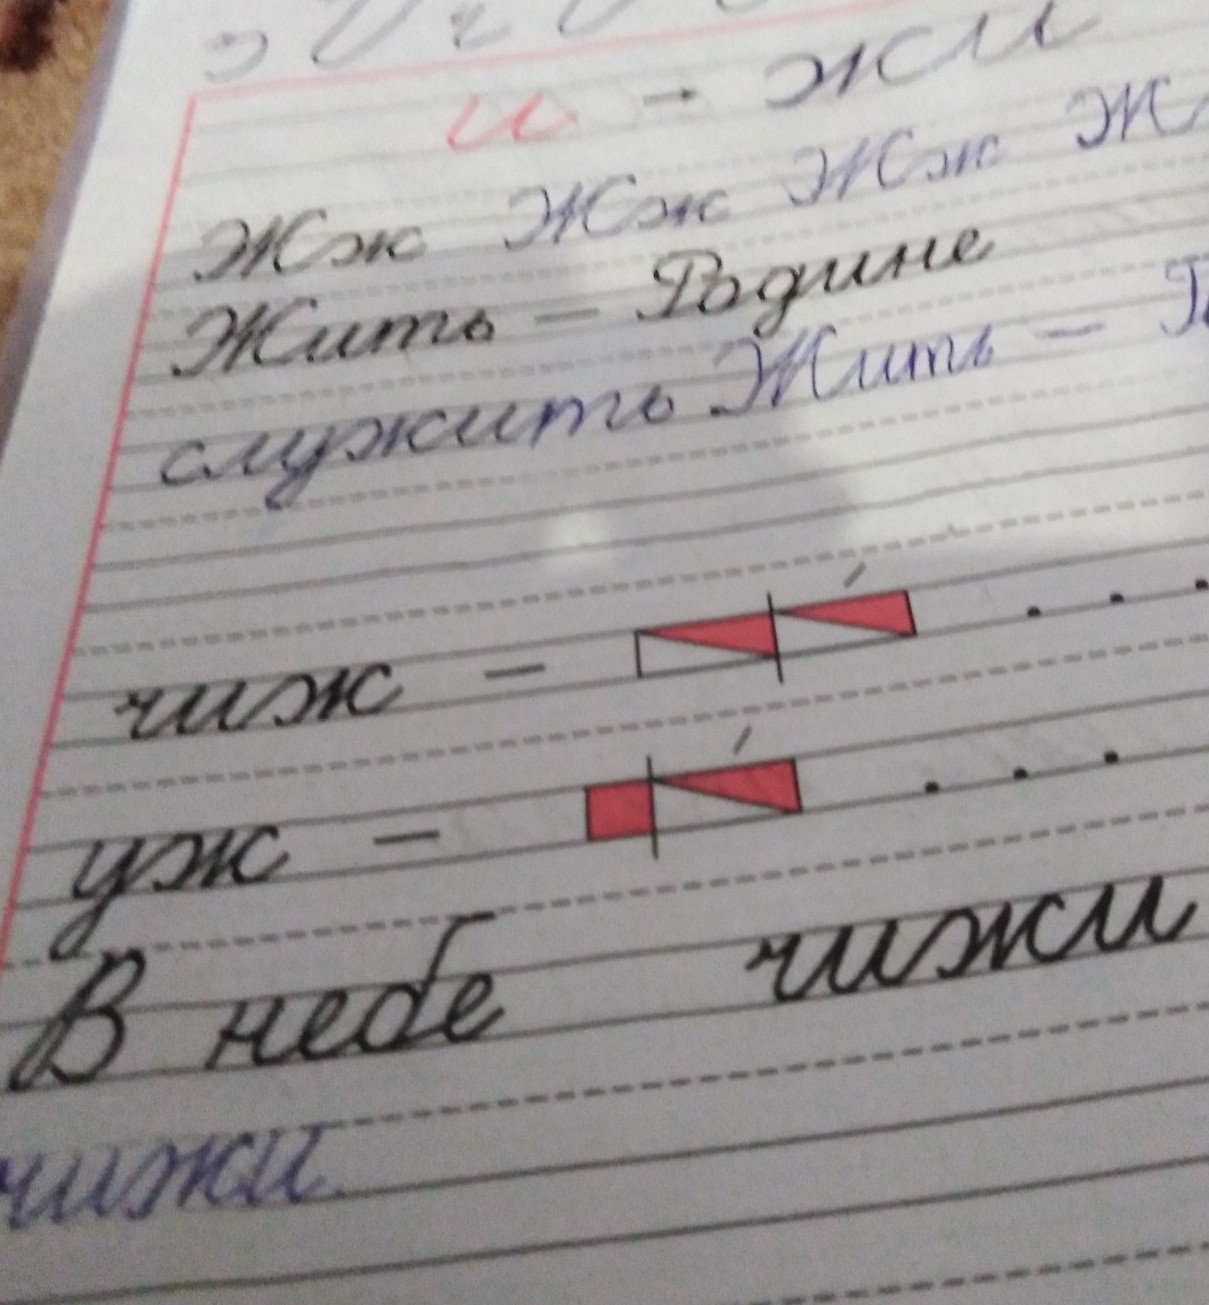 и - жи
Жж Жж Жж Ж
Жить – Родине
служить Жить –
чиж – . . .
уж – . . .
В небе чижи
чижи